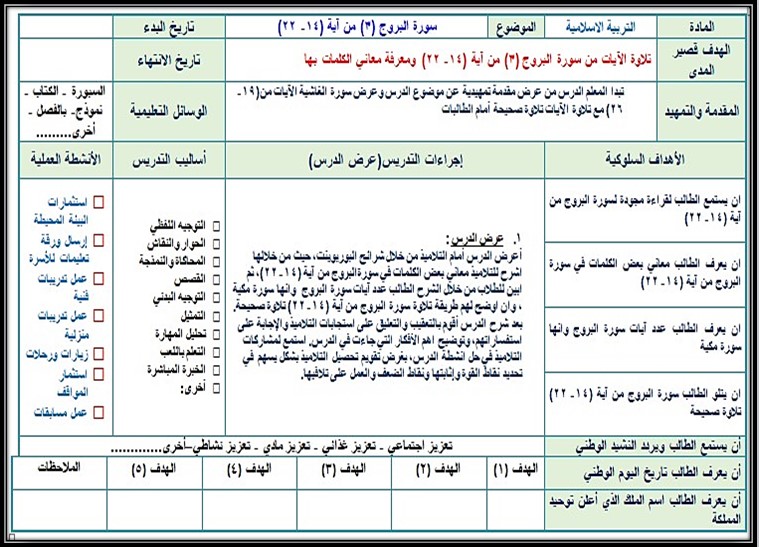 المادة
التربية الاسلامية
الموضوع
سورة البروج (٣) من آية (١٤- ٢٢)
تاريخ البدء
الهدف قصير
المدى
تلاوة الآيات من سورة البروج (٣) من آية (١٤- ٢٢) ومعرفة معاني الكلمات بها
تاريخ الانتهاء
المقدمة والتمهيد
تبدا المعلم الدرس من عرض مقدمة تمهيدية عن موضوع الدرس وعرض سورة الغاشية الآيات من(١٩-
٢٦) مع تلاوة الآيات تلاوة صحيحة أمام الطالبات
الوسائل التعليمية
السبورة - الكتاب -
نموذج- بالفصل -
أخرى..........
الأهداف السلوكية
إجراءات التدريس(عرض الدرس)
أساليب التدريس
الأنشطة العملية
ان يستمع الطالب لقراءة مجودة لسورة البروج من
آية (١٤-٢٢)
ان يعرف الطالب معاني بعض الكلمات في سورة
البروج من آية (١٤-٢٢)
ان يعرف الطالب عدد آيات سورة البروج وانها
سورة مكية
ان يتلو الطالب سورة البروج من آية (١٤- ٢٢)
تلاوة صحيحة
١. عرض الدرس:
أعرض الدرس أمام التلاميذ من خلال شرائح البوربوينت، حيث من خلالها
اشرح للتلاميذ معاني بعض الكلمات في سورة البروج من آية (١٤-٢٢)، ثم
ابين للطلاب من خلال الشرح الطالب عدد آيات سورة البروج وانها سورة مكية
، وان اوضح لهم طريقة تلاوة سورة البروج من آية (١٤-٢٢) تلاوة صحيحة.
بعد شرح الدرس أقوم بالتعقيب والتعليق على استجابات التلاميذ والإجابة على
استفساراتهم، وتوضيح اهم الأفكار التي جاءت في الدرس. استمع لمشاركات
التلاميذ في حل انشطة الدرس، بغرض تقويم تحصيل التلاميذ بشكل يسهم في
تحديد نقاط القوة وإثباتها ونقاط الضعف والعمل على تلافيها.
التوجيه اللفظي
الحوار والنقاش
المحاكاة والنمذجة
القصص
التوجيه البدني
التمثيل
تحليل المهارة
التعلم باللعب
الخبرة المباشرة
أخرى:
استثمارات
البيئة المحيطة
إرسال ورقة
تعليمات للأسرة
عمل تدريبات
فنية
عمل تدريبات
منزلية
زيارات ورحلات
استثمار
المواقف
عمل مسابقات
أن يستمع الطالب ويردد النشيد الوطني
تعزيز اجتماعي - تعزيز غذائي - تعزيز مادي - تعزيز نشاطي–أخرى.............
أن يعرف الطالب تاريخ اليوم الوطني
الهدف (١)
الهدف (٢)
الهدف (٣)
الهدف (٤)
الهدف (٥)
الملاحظات
أن يعرف الطالب اسم الملك الذي أعلن توحيد
المملكة